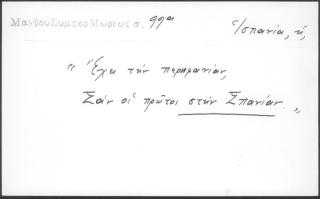 Μανθου Συμφορ Μωρεως σ. 99α
Ἱσπανία, ἡ,
" Ἔχει τὴν περηφανίαν,
Σὰν οἱ πρῶτοι στὴν Σπανίαν. „